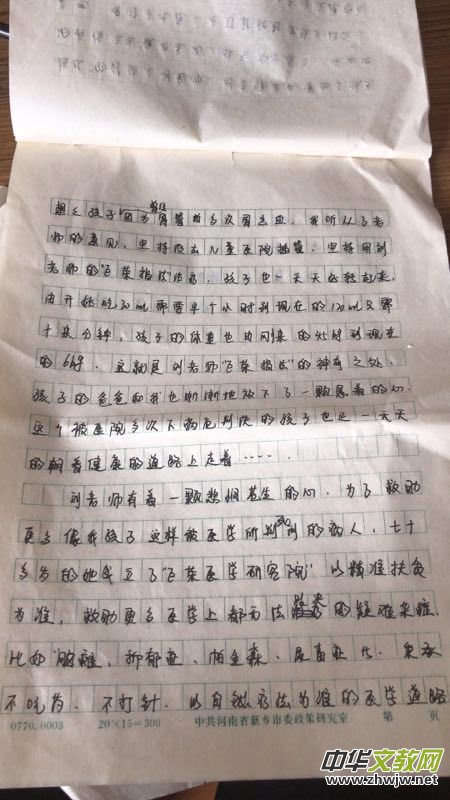 想之孩子因为鼻管曾多次胃出血，我听从了老
师的意见，坚持没去儿童医院插管，坚持用刘
老师的"飞荣指法"治疗，孩子也一天天好转起来，
由开始吃30ml都要半个小时到现在的120ml只要
十来分钟，孩子的体重也由问来的到现在
的6kg，这就是刘老师"飞荣指法"的神奇之处，
孩子的爸爸和我也渐渐地放下了一颗悬着的心，
这个被医院多次下病危判决的孩子也是一天天
的朝着健康的道路上走着……．
刘老师有着一颗悲悯苍生的心，为了救助
更多像我孩子这样被医学所判死刑的病人，七十
多岁的她成立了"飞荣医学研究院"以精准扶贫
为准，救助更多医学上都无法的疑难杂症，
比如"脑瘫，抑郁症，帕金森，尿毒症"也，秉承
不吃药，不打针，以自然疗法为准的医学道路
0770.0003 20×15=300 中共河南省新乡市委政策研究室 第 页
中华文教网
www.zhwjw.net